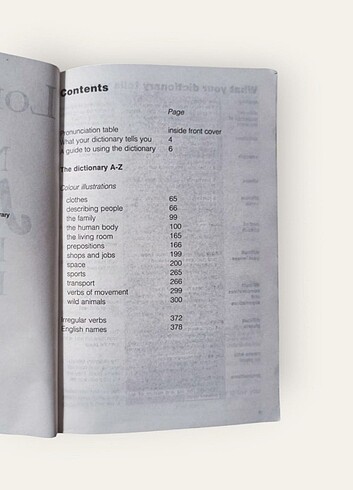 Contents
Page
Pronunciation table inside front cover
What your dictionary tells you 4
A guide to using the dictionary 6
The dictionary A-Z
Colour illustrations
clothes 65
describing people 66
the family 99
the human body 100
the living room 165
prepositions 166
shops and jobs 199
space 200
sports 265
transport 266
verbs of movement 299
wild animals 300
Irregular verbs 372
English names 378